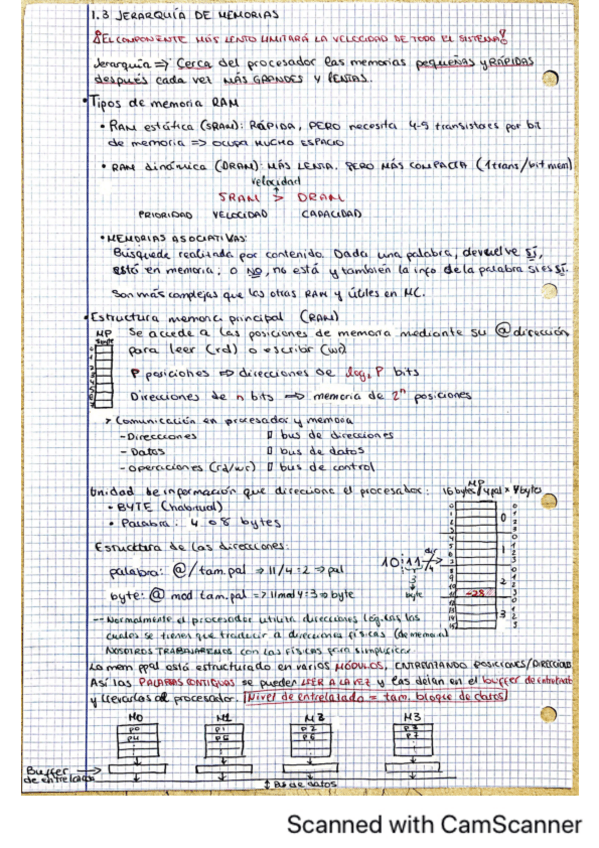 1.3 JERARQUÍA DE MEMORIAS
¡EL COMPONENTE MÁS LENTO LIMITARÁ LA VELOCIDAD DE TODO EL SISTEMA!
Jerarquía => Cerca del procesador las memorias pequeñas y RÁPIDAS
después cada vez MÁS GRANDES Y LENTAS.
• Tipos de memoria RAM
• RAM estática (SRAM): RÁPIDA, PERO necesita 4-5 transistores por bit
de memoria => ocupa MUCHO ESPACIO
• RAM dinámica (DRAM): MÁS LENTA, PERO MÁS COMPACTA (1trans/bit mem)
velocidad
SRAM > DRAM
PRIORIDAD VELOCIDAD CAPACIDAD
• MEMORIAS ASOCIATIVAS:
Búsqueda realizada por contenido. Dada una palabra, devuelve SÍ,
está en memoria; o NO, no está y también la info de la palabra si es SÍ.
Son más complejas que las otras RAM y útiles en MC.
• Estructura memoria principal (RAM)
MP
Se accede a las posiciones de memoria mediante su @dirección
para leer (rd) o escribir (wr)
P posiciones => direcciones de log₂ P bits
Direcciones de n bits => memoria de 2ⁿ posiciones
> Comunicación en procesador y memoria
- Direcciones bus de direcciones
- Datos bus de datos
- Operaciones (rd/wr) bus de control
Unidad de información que direcciona el procesador:
• BYTE (habitual)
• Palabra: 4 o 8 bytes
MP
16 bytes/4pal x 4bytes
Estructura de las direcciones:
palabra: @/tam.pal => 11/4:2 => pal
byte: @ mod tam.pal => 11mod4:3 => byte
10 11 dir /4
3
byte
0 1 2 3
-28
-- Normalmente el procesador utiliza direcciones lógicas las
cuales se tienen que traducir a direcciones físicas (de memoria)
NOSOTROS TRABAJAREMOS con las físicas para simplificar
La mem ppal está estructurado en varios MÓDULOS, ENTRELAZANDO POSICIONES/DIRECCIONES
Así las PALABRAS CONTIGUAS se pueden LEER A LA VEZ y las dejan en el buffer de entrelazado
y llevarlas al procesador. Nivel de entrelazado = tam. bloque de datos
M0 M1 M2 M3
P0 P1 P2 P3
P4 P5 P6 P7
Buffer
de entrelazado
Bus de datos
Scanned with CamScanner